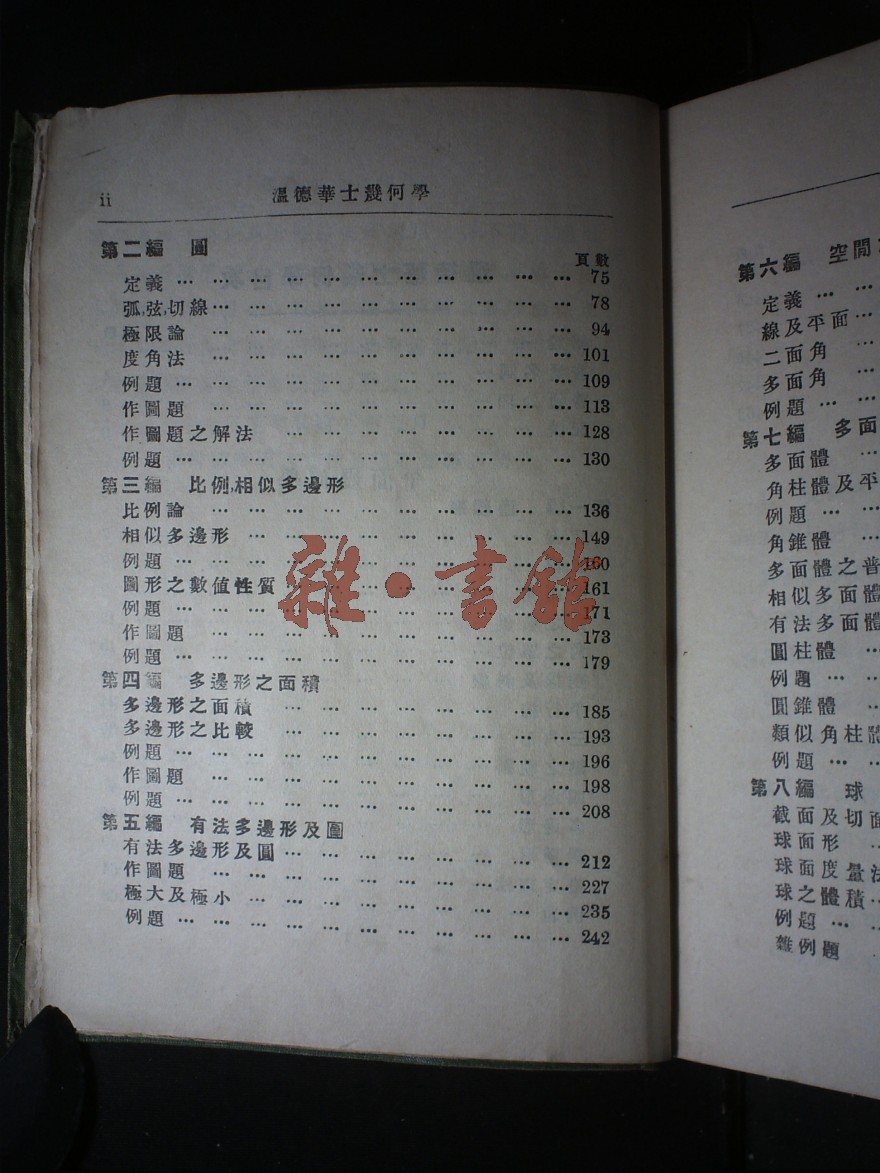 ii 溫德華士幾何學
第二編 圓
頁數
定義 … … … … … … … … … … … 75
弧,弦,切線… … … … … … … … … … 78
極限論 … … … … … … … … … … 94
度角法 … … … … … … … … … … 101
例題 … … … … … … … … … … … 109
作圖題 … … … … … … … … … … 113
作圖題之解法 … … … … … … … … 128
例題 … … … … … … … … … … … 130
第三編 比例,相似多邊形
比例論 … … … … … … … … … … 136
相似多邊形 … … … … … … … … … 149
例題 … … … … … … … … … … … 160
圖形之數值性質 … … … … … … … … 161
例題 … … … … … … … … … … … 171
作圖題 … … … … … … … … … … 173
例題 … … … … … … … … … … … 179
第四編 多邊形之面積
多邊形之面積 … … … … … … … … 185
多邊形之比較 … … … … … … … … 193
例題 … … … … … … … … … … … 196
作圖題 … … … … … … … … … … 198
例題 … … … … … … … … … … … 208
第五編 有法多邊形及圓
有法多邊形及圓 … … … … … … … … 212
作圖題 … … … … … … … … … … 227
極大及極小 … … … … … … … … … 235
例題 … … … … … … … … … … … 242
雜·書館
第六編 空間
定義 … …
線及平面 …
二面角 …
多面角 …
例題 … …
第七編 多面
多面體 …
角柱體及平
例題 … …
角錐體 …
多面體之普
相似多面體
有法多面體
圓柱體 …
例題 …
圓錐體 …
類似角柱體
例題 … …
第八編 球
截面及切面
球面形 …
球面度量法
球之體積 …
例題 …
雜例題